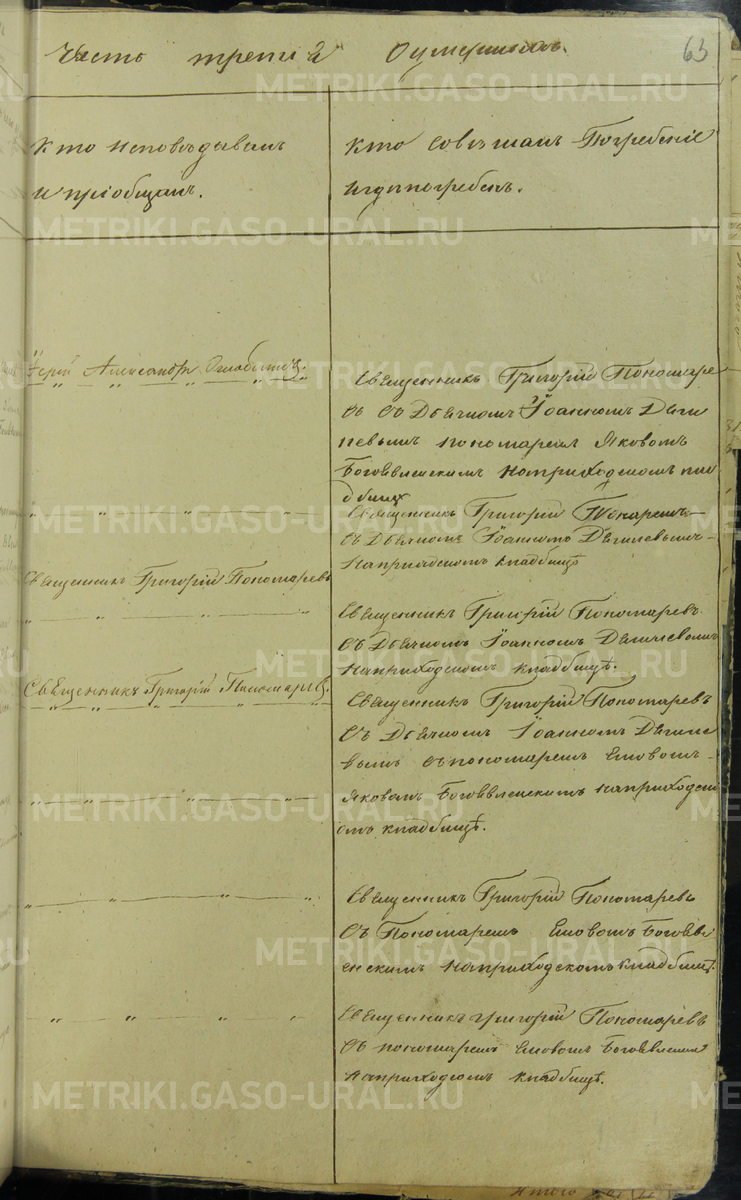 63
Часть третія Оумершихъ.
Кто исповѣдывалъ
и пріобщалъ.
Кто совершалъ Погребеніе
и гдѣ погребенъ.
Іерей Александръ
Священникъ Григорій Пономаре
въ съ Дьячкомъ Іоанномъ Деги
левымъ пономаремъ Яковомъ
Богоявленскимъ на приходскомъ кла
дбищѣ
Священникъ Григорій
съ Дьячкомъ Іоанномъ Дегилевымъ
на приходскомъ кладбищѣ
Священникъ Григорій Пономаревъ
Священникъ Григорій Пономаревъ
съ Дьячкомъ Іоанномъ Дегилевымъ
на приходскомъ кладбищѣ.
Священникъ Григорій Пономаревъ.
Священникъ Григорій Пономаревъ
съ Дьячкомъ Іоанномъ Дегиле
вымъ съ пономаремъ
Яковомъ Богоявленскимъ на приходск
омъ кладбищѣ.
Священникъ Григорій Пономаревъ
съ Пономаремъ Богоявл
енскимъ на приходскомъ кладбищѣ.
Священникъ Григорій Пономаревъ
съ пономаремъ
на приходскомъ кладбищѣ.
Итого
METRIKI.GASO-URAL.RU